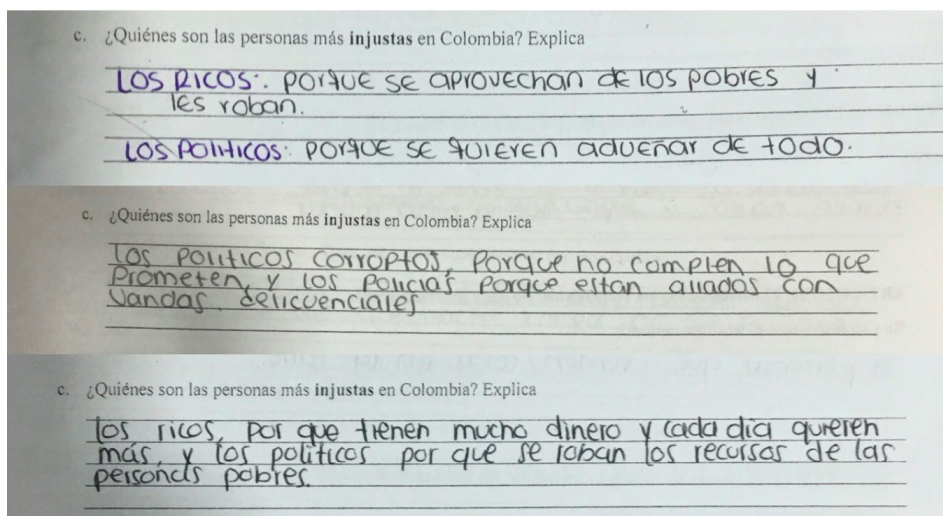 c. ¿Quiénes son las personas más injustas en Colombia? Explica
LOS RICOS: PORQUE SE APROVECHAN DE LOS POBRES Y
les roban.
LOS POLITICOS: PORQUE SE QUIEREN ADUEÑAR DE TODO.
c. ¿Quiénes son las personas más injustas en Colombia? Explica
Los politicos corroptos, Porque no complen lo que
Prometen, y los policias porque estan aliados con
Vandas delicuenciales
c. ¿Quiénes son las personas más injustas en Colombia? Explica
los ricos, por que tienen mucho dinero y cada dia quieren
más, y los politicos por que se roban los recursos de las
personas pobres.